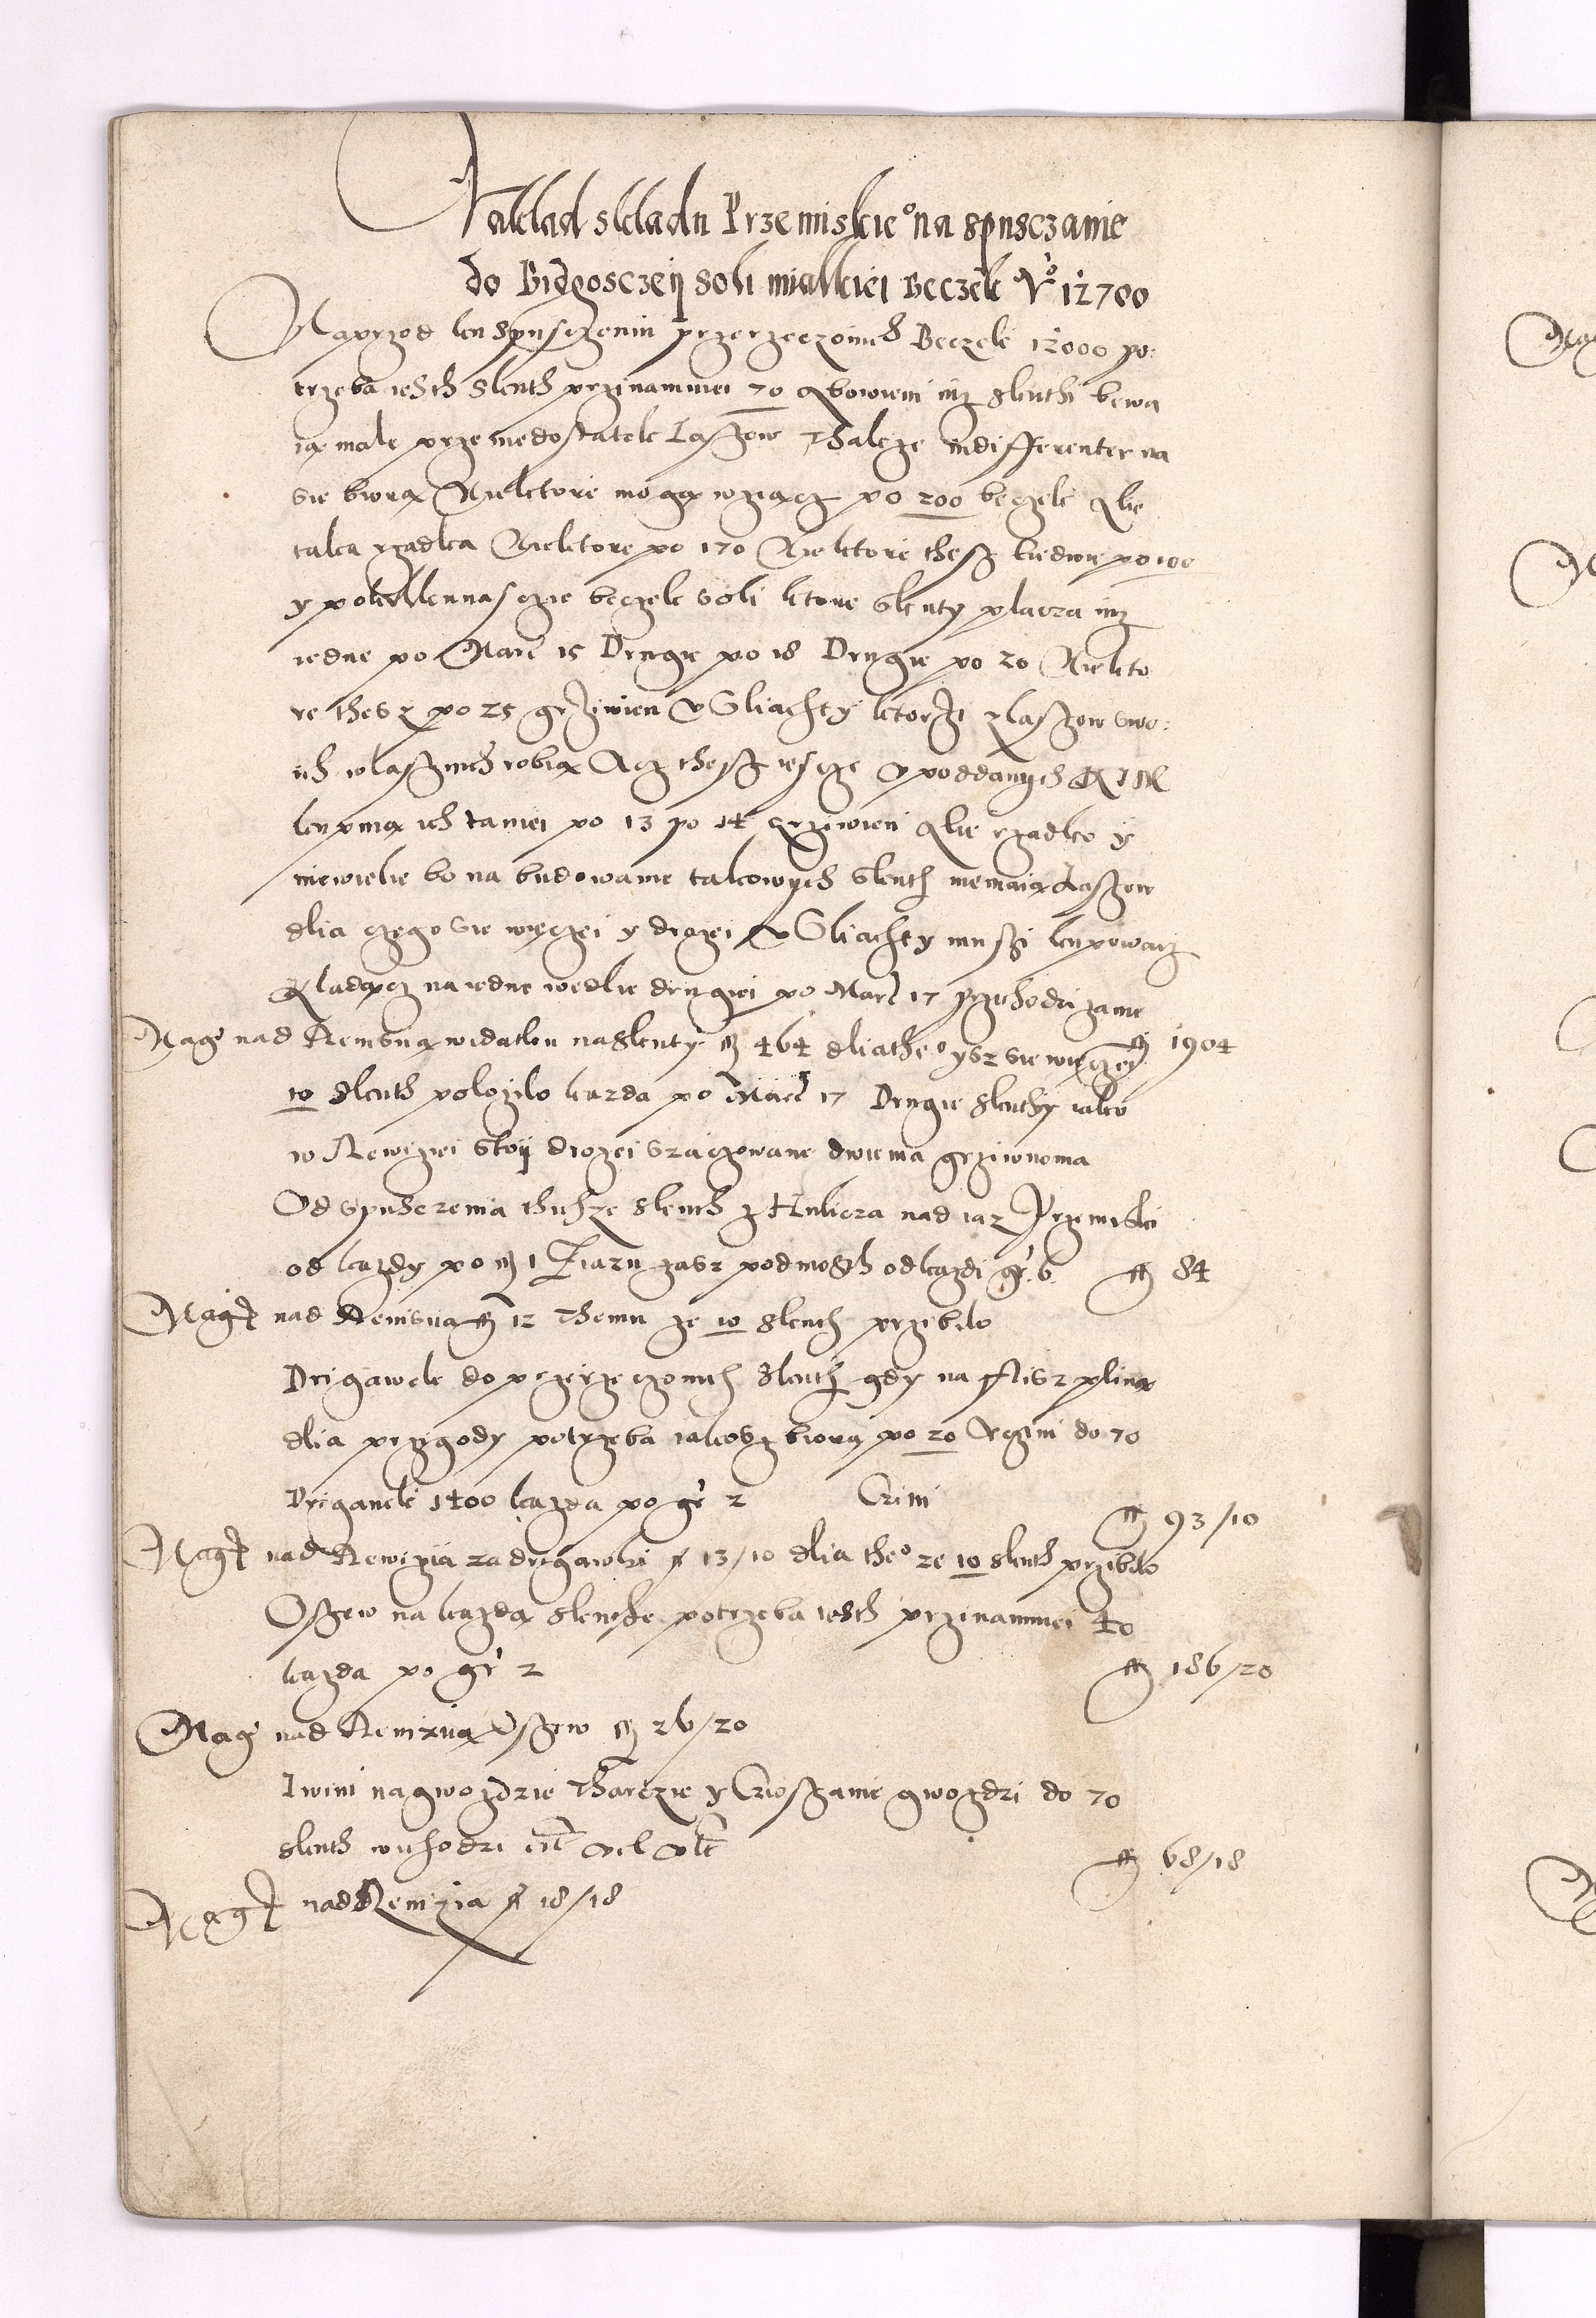 Naklad skladu Przemiskie° na spusczanie
do Bidgosczeÿ soli mialkiei Beczek N° 12700
Naprzod ku spusczeniu przerzeczonich Beczek 12000 po:
trzeba iesth skuth przinamniei 70 Abowiem iuz skuthi bewa
ią male prze niedostatek Laszow Thakze indifferenter na
sie biorą Niektore mogą wziącz po 200 beczek Alie
taka rzadka Niektore po 170 Niektore thesz liedwie po 100
y pokilkunasczie beczek soli ktore skuty placza iuz
iedne po Marc 15 Drugie po 18 Drugie po 20 Niekto
re thesz po 25 grziwien v Sliachty ktorzi z laszow swo:
ich wlasznich robią Acz thesz iescze v poddanych K J M
kupuią ich taniei po 13 po 14 grziwien Alie rzadko y
niewielie bo na budowanie takowych skuth niemaią Laszow
dlia czego sie więczei y drozei v Sliachty muszi kupowacz
Kladącz na iedne wedlie drugiei po Marc 17 przichodzi zanie
fl 1904
Nag° nad Rewisią widatku na skuty fl 464 dliathe° ysz sie więczei
10 skuth polozilo kazda po Marc 17 Drugie skuthy iako
w Rewiziei stoÿ drozei szaczowane dwiema grziwnoma
Od spusczenia thichze skuth z Hulicza nad iaz Przemiski
od kazdy po fl 1 Ziazu zasz pod mosth od kazdi gr. 6 fl 84
Nagt nad Rewisią fl 12 Themu ze 10 skuth przibilo
Drigawek do przerzeczonich skuth gdy na Flisz plina
dlia przigody potrzeba iakosz biorą po 20 Vczini do 70
Drigawek 1400 kazda po gr 2 Czini fl 93/10
Nagt nad Rewizia za drigawki fl 13/10 dlia the° ze 10 skuth przibilo
Oszew na kazdą skuthe potrzeba iesth przinamniei 40
kazda po gr 2 fl 186/20
Nag° nad Rewizią Oszew fl 26/20
Iwini na gwozdzie Tharczie y Cziosanie gwozdzi do 70
skuth wichodzi fl 68/18
Nagt nad Rewizia fl 18/18